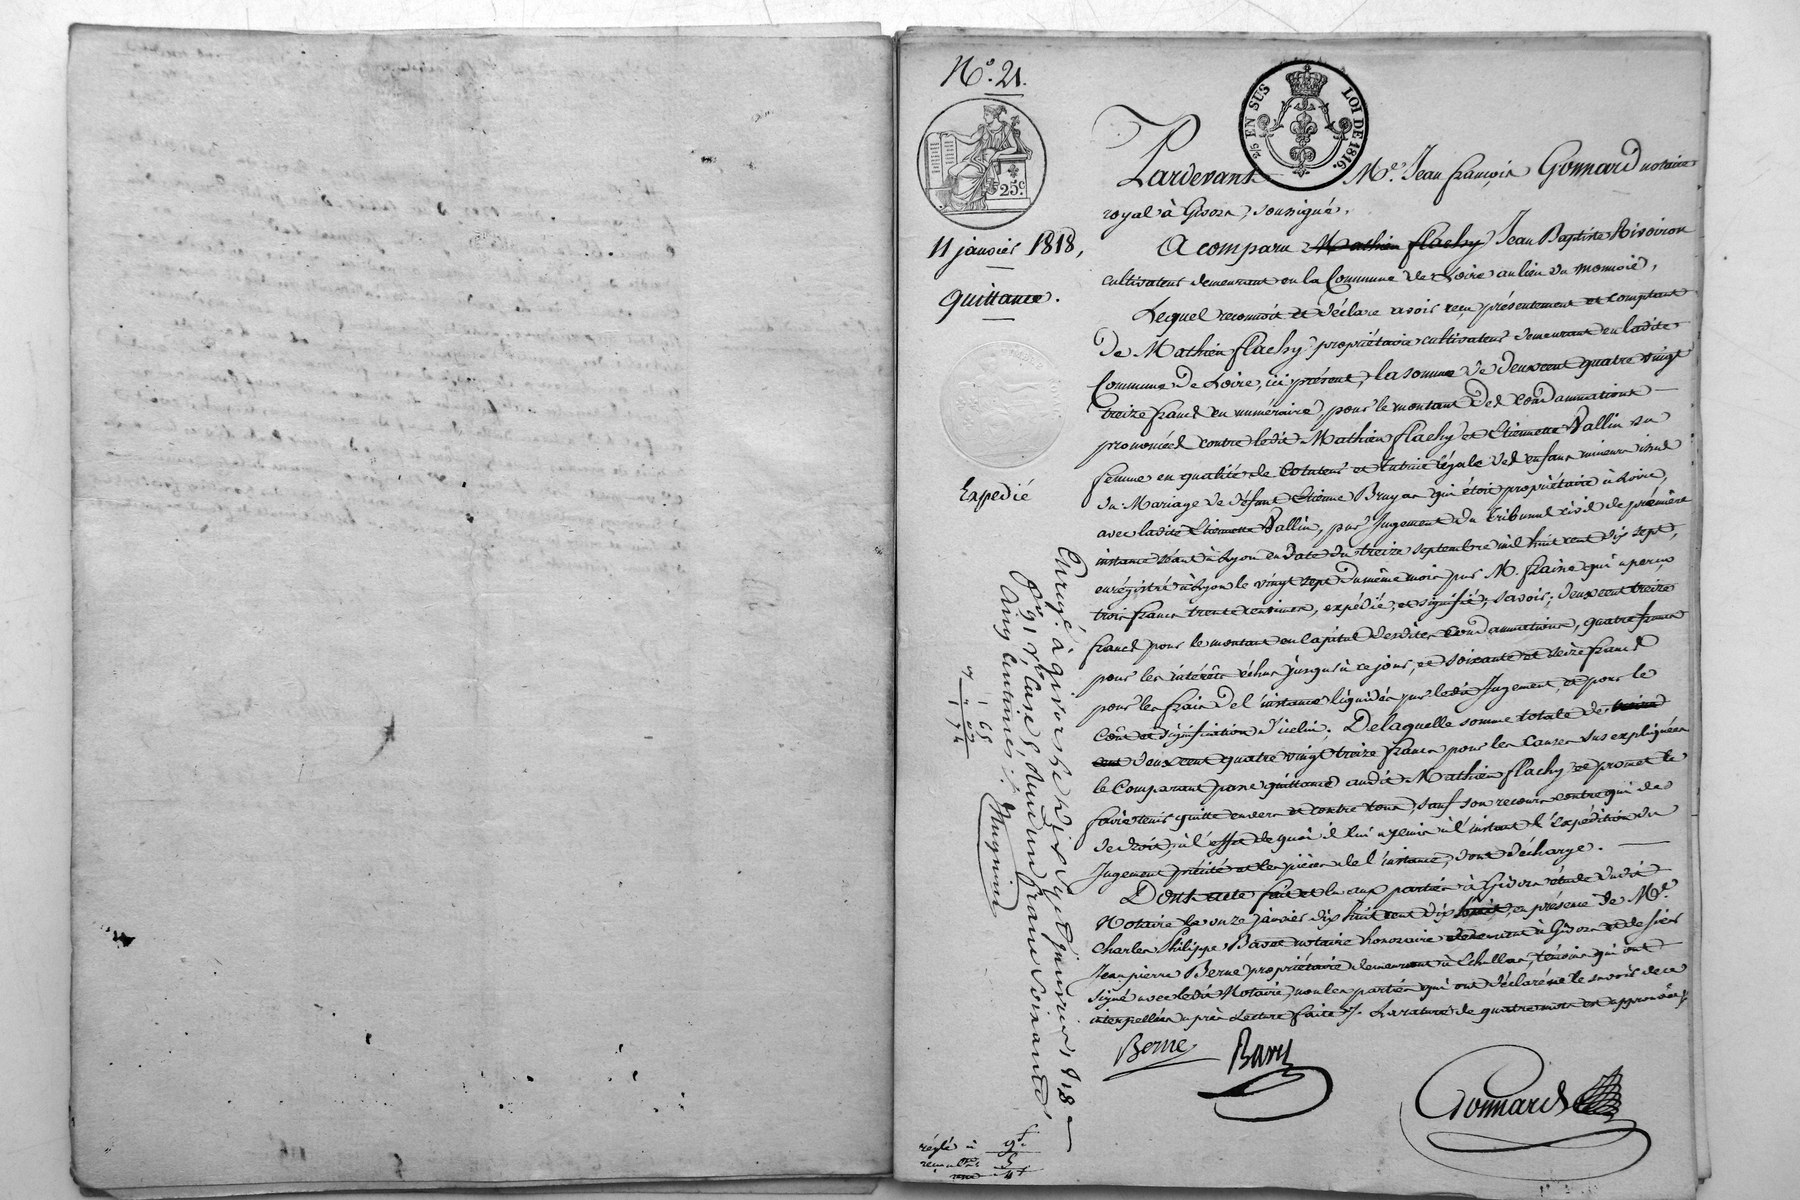 N.º 21.
2/5 EN SUS LOI DE 1816.
25.c
Pardevant M.e Jean françois Gonnard notaire
royal à Givors, soussigné,
11 janvier 1818,
Quittance.
A comparu Mathieu flachy Jean Baptiste Rivoiron
cultivateur demeurant en la Commune de Loire au lieu du monnoie,
Lequel reconnoit et déclare avoir reçu présentement et comptant
de Mathieu flachy propriétaire cultivateur demeurant en ladite
Commune de Loire, ici présent, la somme de deux cent quatre vingt
treize francs en numéraire, pour le montant des condamnations
prononcées contre ledit Mathieu flachy et Etiennette Vallin sa
femme en qualité de cotuteur et tutrice légale des enfans mineurs issus
du Mariage de défunt Etienne Bruyas qui étoit propriétaire à Loire,
avec ladite Etiennette Vallin, par Jugement du tribunal civil de première
instance séant à Lyon en date du treize septembre mil huit cent dix sept,
enrégistré à Lyon le vingt sept du même mois par M. fraine qui a perçu
trois francs trente centimes, expédié et signifié; savoir; deux cent treize
francs pour le montant en capital desdites condamnations, quatre francs
pour les intérêts échus jusqu'à ce jour, et soixante et seize francs
pour les frais de l'instance liquidés par ledit Jugement, et pour le
Coût et signification d'icelui; De laquelle somme totale de
deux cent quatre vingt treize francs pour les causes sus expliquées
le Comparant passe quittance audit Mathieu flachy et promet le
faire tenir quitte envers et contre tous, sauf son recours contre qui de
de droit, à l'effet de quoi il lui a remis à l'instant l'expédition du
Jugement précité et les pièces de l'instance, dont décharge.
Dont acte fait et lu aux parties à Givors étude dudit
Notaire le onze janvier dix huit cent dix huit, en présence de M.e
Charles Philippe Bavet notaire honoraire demeurant à Givors et de sieur
Jean pierre Berne propriétaire demeurant à Echallas, témoins qui ont
signé avec ledit Notaire, non les parties qui ont déclaré ne le savoir de ce
interpellées après Lecture faite. La rature de quatre mots est approuvée.
Expedié
Enrégé. à givors le dix sept janvier, 1818
f.o 91 v.o Case 8, Reçu un franc soixante
cinq centimes
1 65
1 74
Berne Bavet
Gonnard
réglé à 9f.
reçu 5
4f